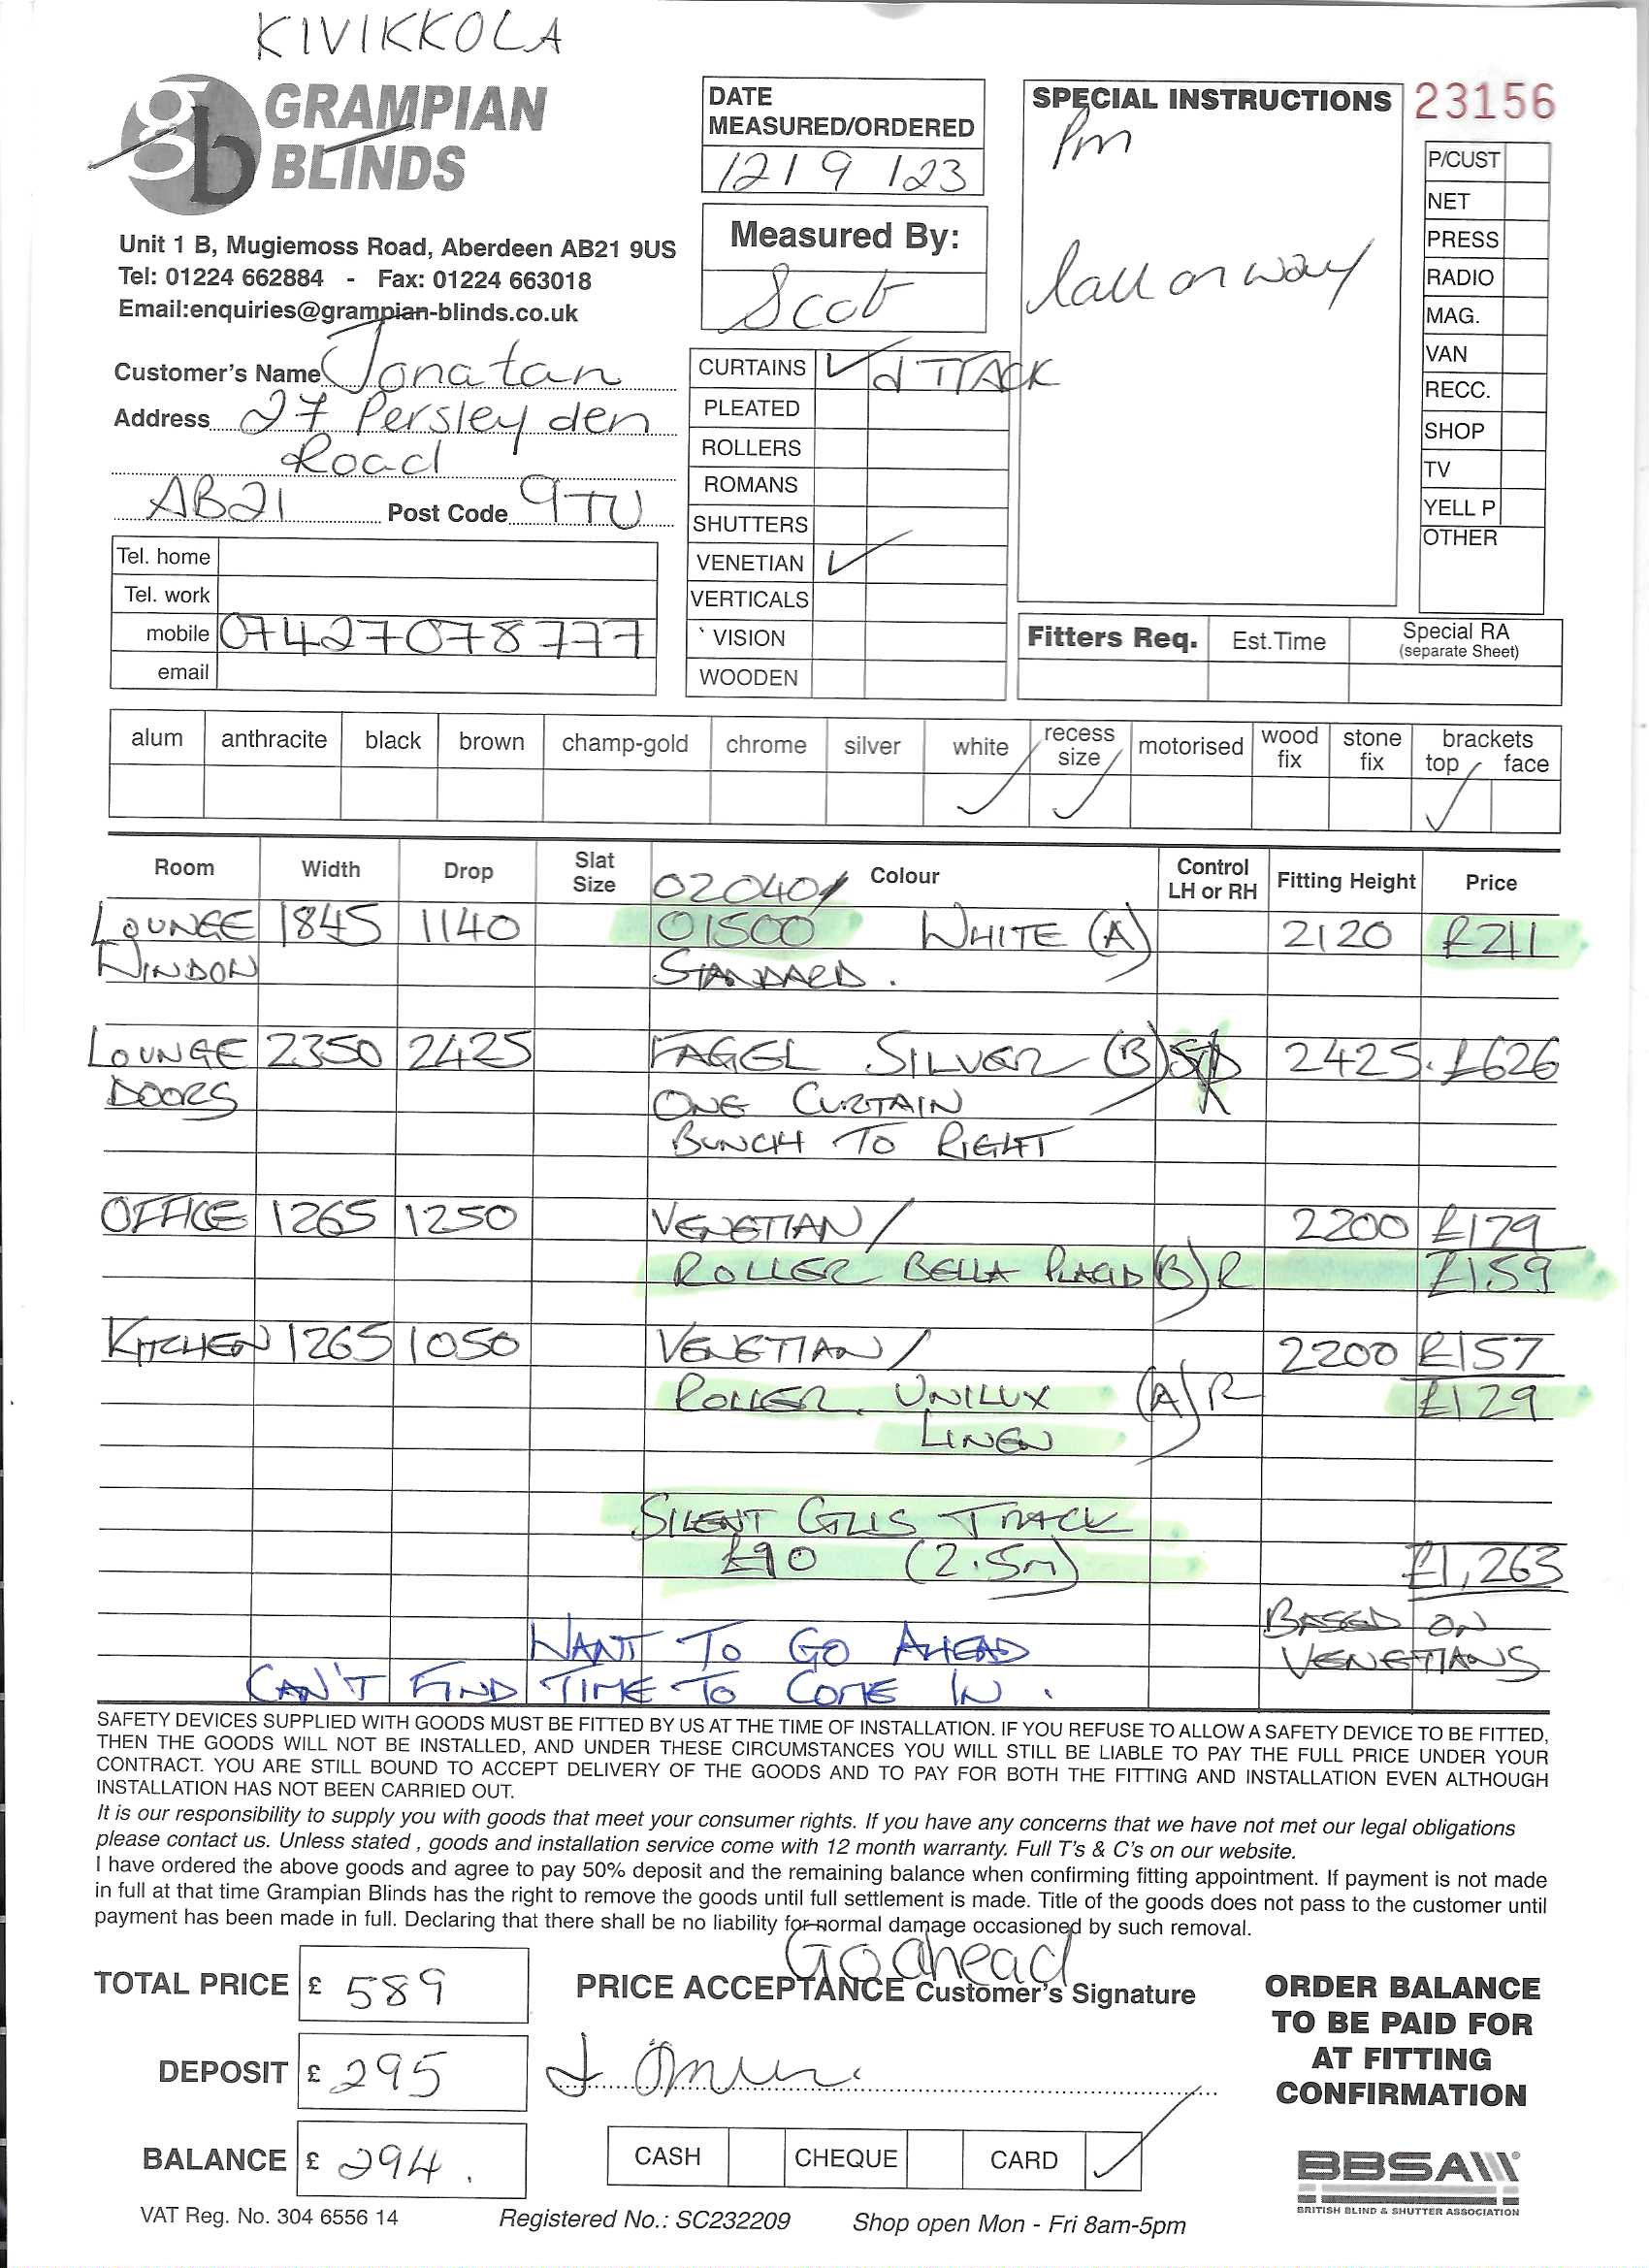 KIVIKKOLA
gb GRAMPIAN
BLINDS
Unit 1 B, Mugiemoss Road, Aberdeen AB21 9US
Tel: 01224 662884 - Fax: 01224 663018
Email:enquiries@grampian-blinds.co.uk
Customer's Name Jonatan
Address 27 Persley den
Road
AB21 Post Code 9TU
Tel. home
Tel. work
mobile 07427078777
email
DATE
MEASURED/ORDERED
12/9/23
Measured By:
Scot
CURTAINS TRACK
PLEATED
ROLLERS
ROMANS
SHUTTERS
VENETIAN
VERTICALS
VISION
WOODEN
SPECIAL INSTRUCTIONS
Pm
Call on way
23156
P/CUST
NET
PRESS
RADIO
MAG.
VAN
RECC.
SHOP
TV
YELL P
OTHER
Fitters Req. Est.Time Special RA
(separate Sheet)
alum anthracite black brown champ-gold chrome silver white recess size motorised wood fix stone fix brackets top face
Room Width Drop Slat Size Colour Control LH or RH Fitting Height Price
02040
LOUNGE 1845 1140 01500 WHITE (A) 2120 £211
WINDOW STANDARD.
LOUNGE 2350 2425 FAGEL SILVER (B) 2425. £626
DOORS ONE CURTAIN
BUNCH TO RIGHT
OFFICE 1265 1250 VENETIAN/ 2200 £179
ROLLER BELLA PLACID (B) R £159
KITCHEN 1265 1050 VENETIAN/ 2200 £157
ROLLER UNILUX (A) R £129
LINEN
SILENT GLISS TRACK
£90 (2.5m) £1,263
BASED ON
WANT TO GO AHEAD VENETIANS
CAN'T FIND TIME TO COME IN.
SAFETY DEVICES SUPPLIED WITH GOODS MUST BE FITTED BY US AT THE TIME OF INSTALLATION. IF YOU REFUSE TO ALLOW A SAFETY DEVICE TO BE FITTED,
THEN THE GOODS WILL NOT BE INSTALLED, AND UNDER THESE CIRCUMSTANCES YOU WILL STILL BE LIABLE TO PAY THE FULL PRICE UNDER YOUR
CONTRACT. YOU ARE STILL BOUND TO ACCEPT DELIVERY OF THE GOODS AND TO PAY FOR BOTH THE FITTING AND INSTALLATION EVEN ALTHOUGH
INSTALLATION HAS NOT BEEN CARRIED OUT.
It is our responsibility to supply you with goods that meet your consumer rights. If you have any concerns that we have not met our legal obligations
please contact us. Unless stated , goods and installation service come with 12 month warranty. Full T's & C's on our website.
I have ordered the above goods and agree to pay 50% deposit and the remaining balance when confirming fitting appointment. If payment is not made
in full at that time Grampian Blinds has the right to remove the goods until full settlement is made. Title of the goods does not pass to the customer until
payment has been made in full. Declaring that there shall be no liability for normal damage occasioned by such removal.
Go ahead
TOTAL PRICE £ 589 PRICE ACCEPTANCE Customer's Signature
DEPOSIT £ 295
BALANCE £ 294.
CASH CHEQUE CARD
ORDER BALANCE
TO BE PAID FOR
AT FITTING
CONFIRMATION
BBSA
BRITISH BLIND & SHUTTER ASSOCIATION
VAT Reg. No. 304 6556 14 Registered No.: SC232209 Shop open Mon - Fri 8am-5pm